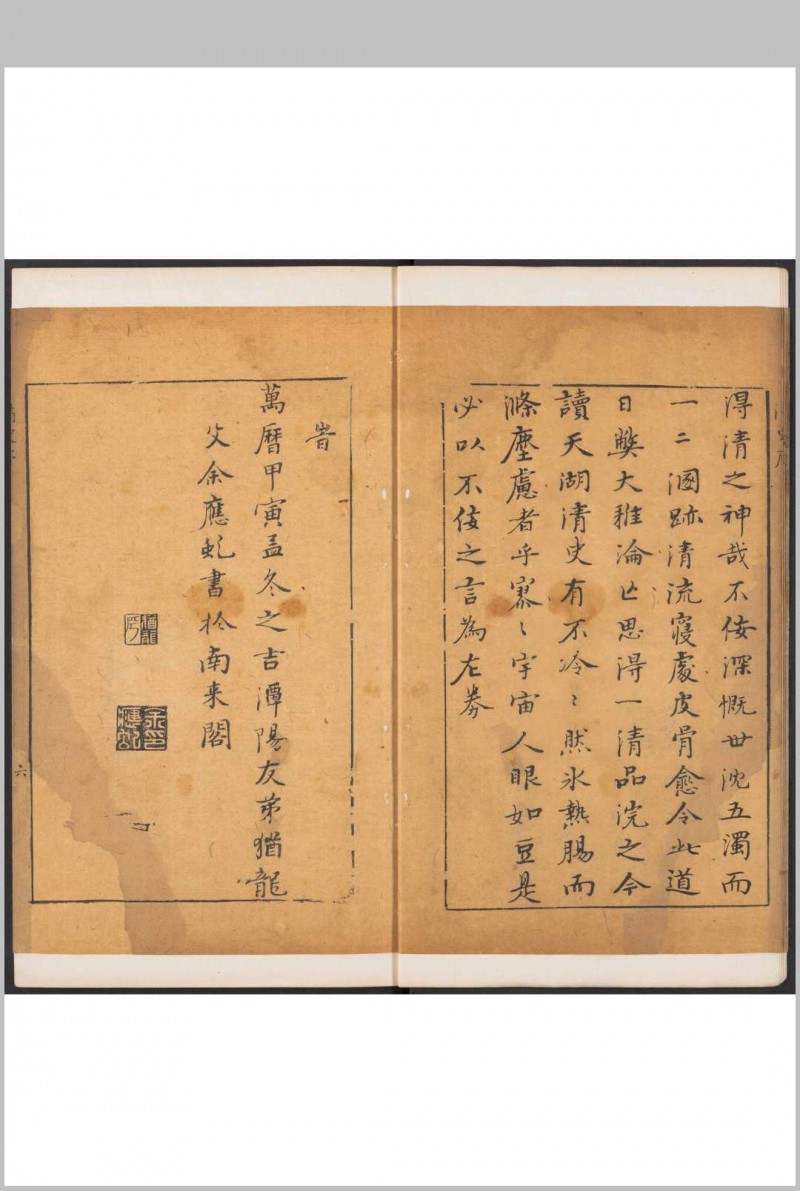 得清之神哉不佞深慨世沈五濁而
一二溷跡清流寢處皮骨愈令此道
日弊大雅淪亡思得一清品浣之今
讀天湖清史有不冷〻然氷熱腸而
滌塵慮者乎寥〻宇宙人眼如豆是
必以不佞之言為左券
旹
萬曆甲寅孟冬之吉潭陽友弟猶龍
父余應虬書於南来閣
六
猶龍
余印
應虬